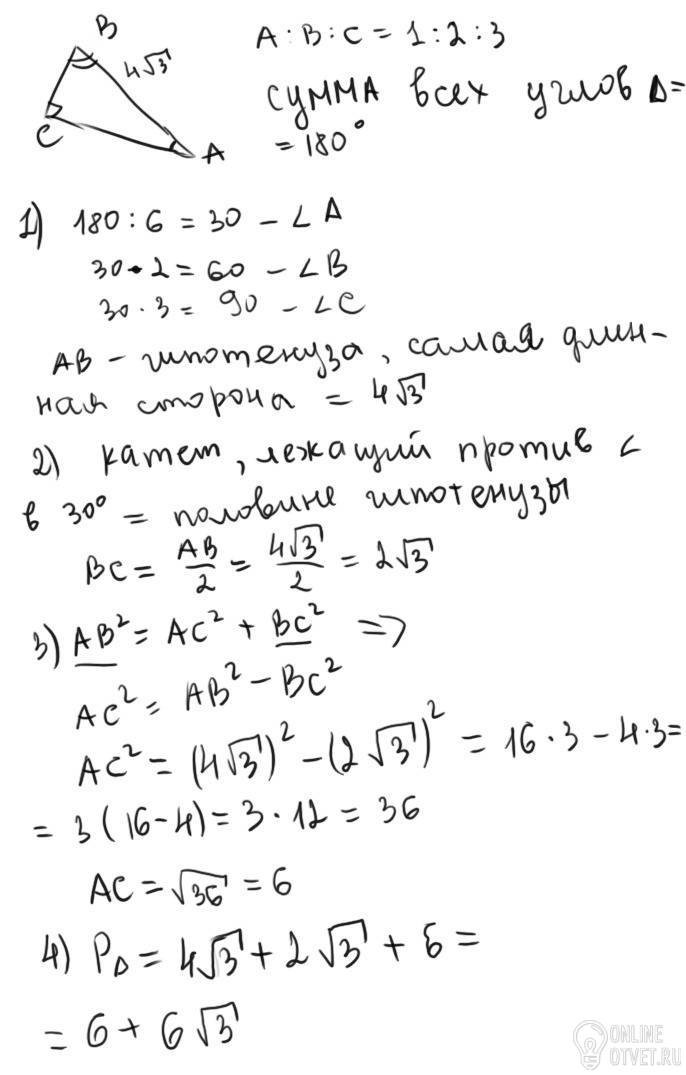 B
4√3
C
A
A : B : C = 1 : 2 : 3
сумма всех углов Δ =
= 180°
1) 180 : 6 = 30 – ∠A
30 · 2 = 60 – ∠B
30 · 3 = 90 – ∠C
AB – гипотенуза, самая длин-
ная сторона = 4√3
2) катет, лежащий против ∠
в 30° = половине гипотенузы
BC = AB/2 = 4√3/2 = 2√3
3) AB² = AC² + BC² =>
AC² = AB² – BC²
AC² = (4√3)² – (2√3)² = 16 · 3 – 4 · 3 =
= 3(16–4) = 3 · 12 = 36
AC = √36 = 6
4) PΔ = 4√3 + 2√3 + 6 =
= 6 + 6√3
ONLINE
OTVET.RU